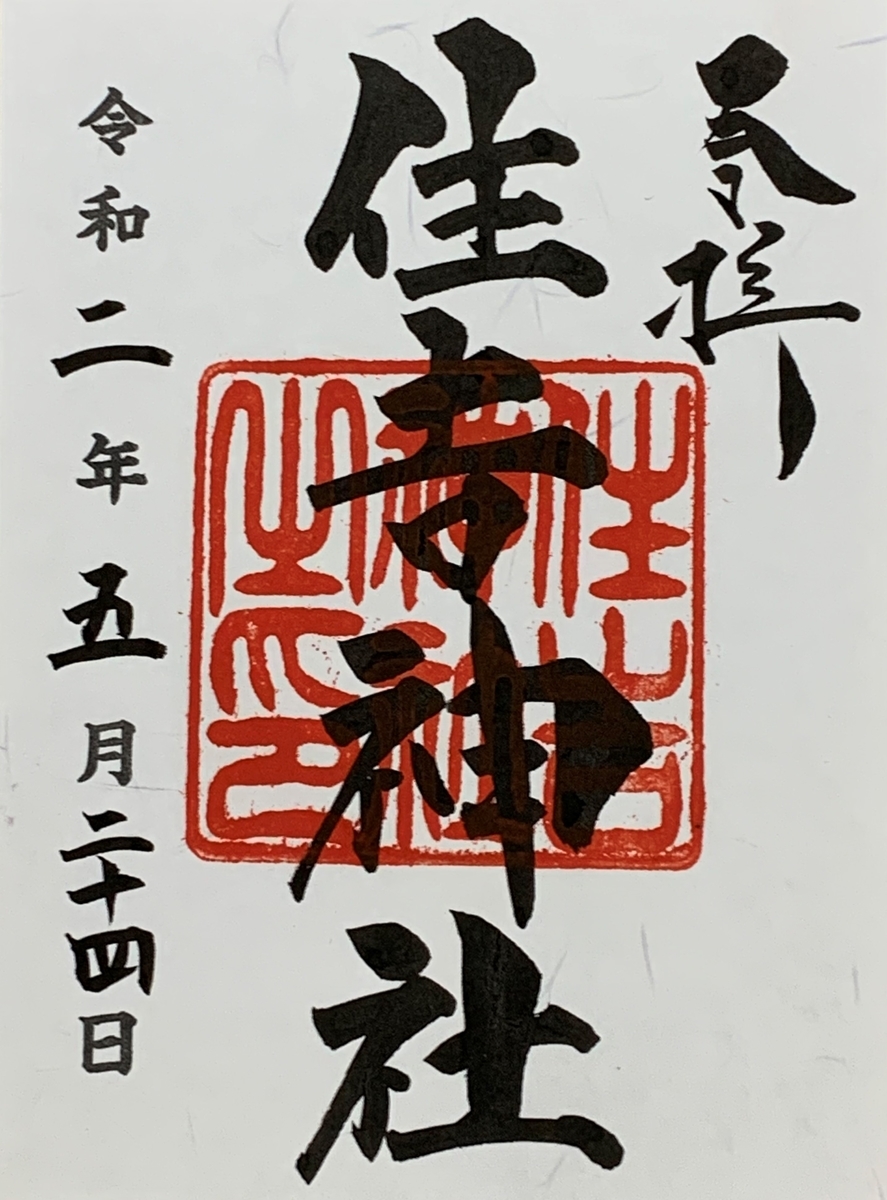 奉拝
住吉神社
住吉神社之印
令和二年五月二十四日